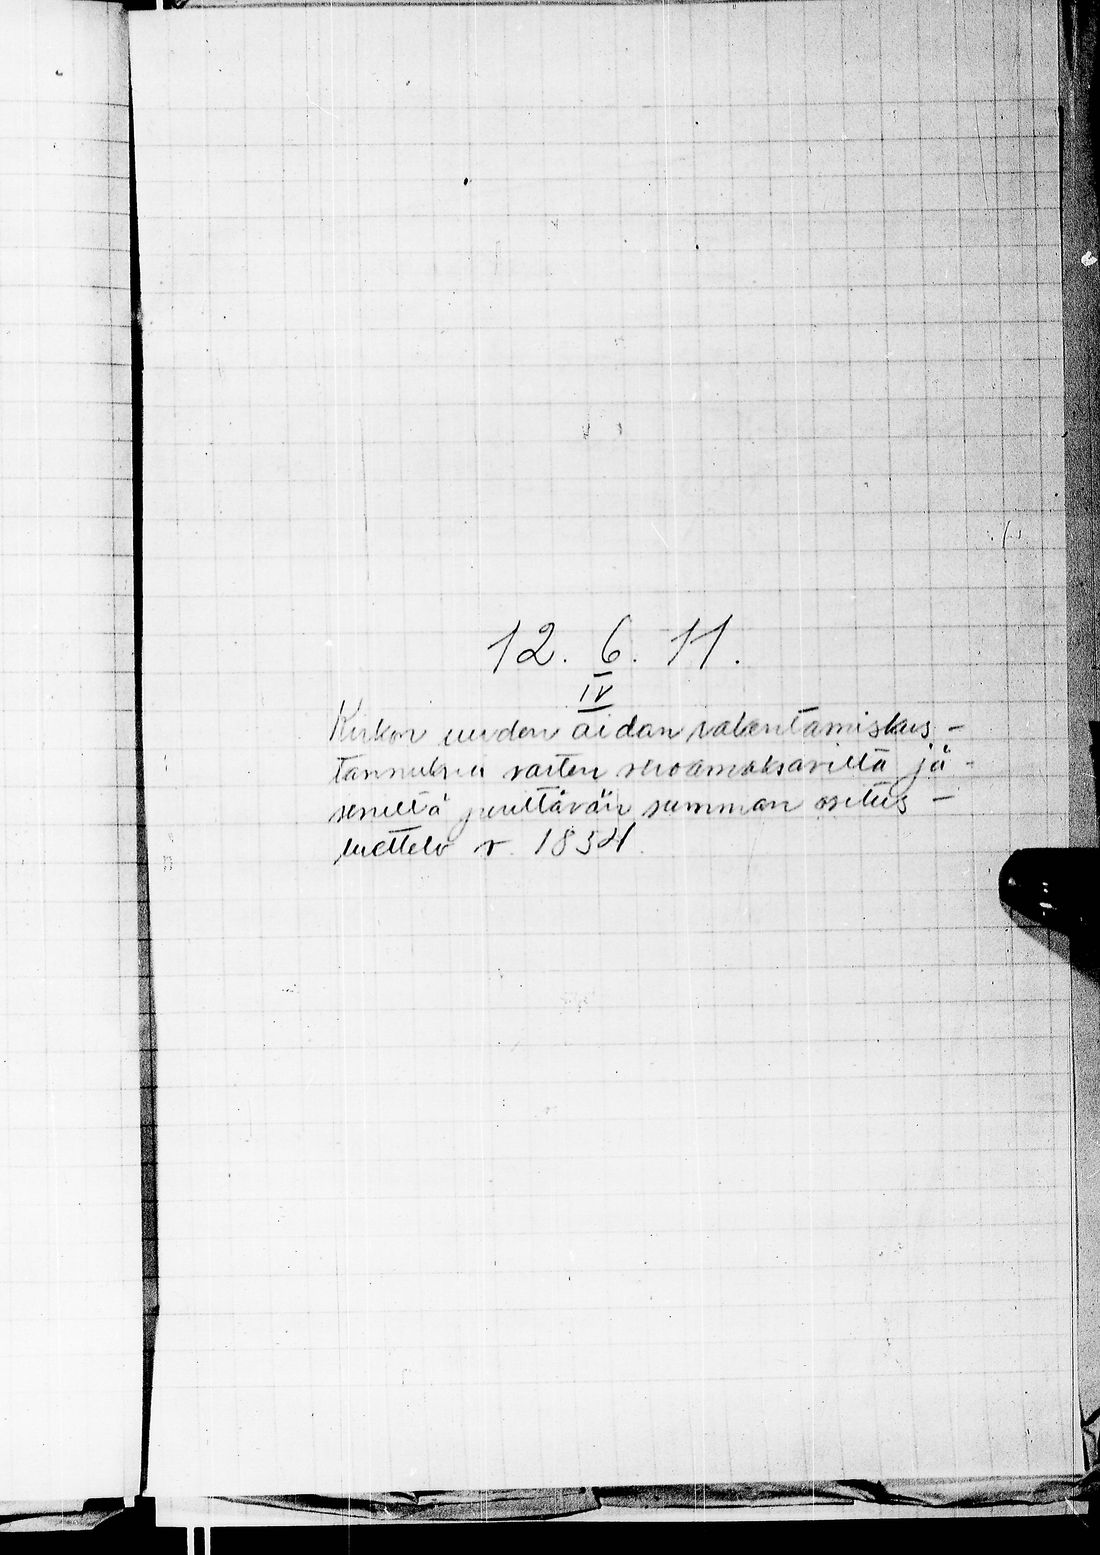 12. 6. 11.
IV
Kirkon uuden aidan rakentamiskus-
tannuksia varten veroamaksavilta jä-
seniltä perittävän summan ositus-
luettelo v. 1834.